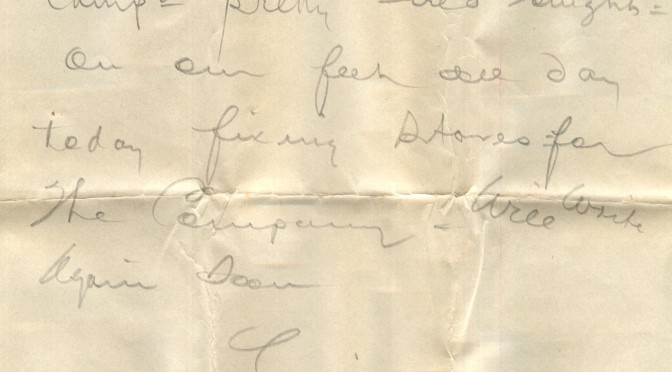 camp - pretty tired tonight -
on our feet all day
today fixing stoves for
The Company - Will Write
Again Soon